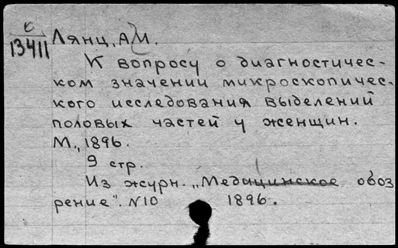 с
13411
Лянц, А.И.
К вопросу о диагностичес-
ком значении микроскопичес-
кого исследования выделений
половых частей у женщин.
М., 1896.
9 стр.
Из журн. „Медицинское обоз
рение". N10 1896.